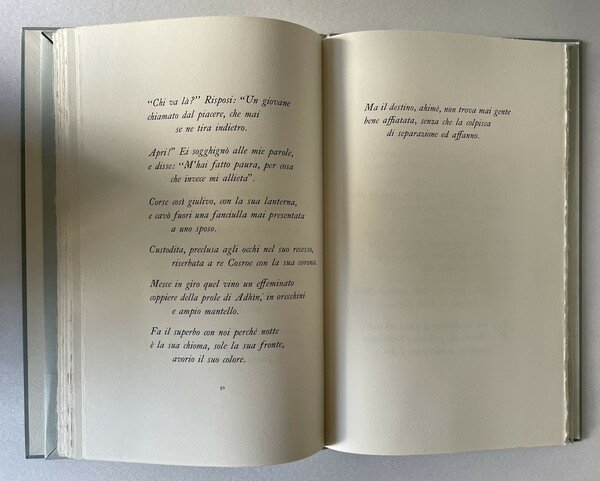 “Chi va là?” Risposi: “Un giovane
chiamato dal piacere, che mai
se ne tira indietro.
Apri!” Ei sogghignò alle mie parole,
e disse: “M'hai fatto paura, per cosa
che invece mi allieta”.
Corse così giulivo, con la sua lanterna,
e cavò fuori una fanciulla mai presentata
a uno sposo.
Custodita, preclusa agli occhi nel suo recesso,
riserbata a re Cosroe con la sua corona.
Mesce in giro quel vino un effeminato
coppiere della prole di Adhìn, in orecchini
e ampio mantello.
Fa il superbo con noi perchè notte
è la sua chioma, sole la sua fronte,
avorio il suo colore.
50
Ma il destino, ahimè, non trova mai gente
bene affiatata, senza che la colpisca
di separazione ed affanno.